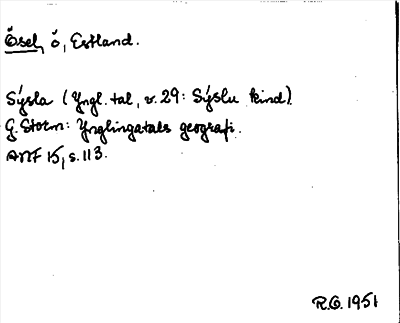 Ösel, ö, Estland.
Sýsla (Yngl. tal, v. 29: Sýslu kind).
G. Storm: Ynglingatals geografi.
ANF 15, s. 113.
R.G. 1951